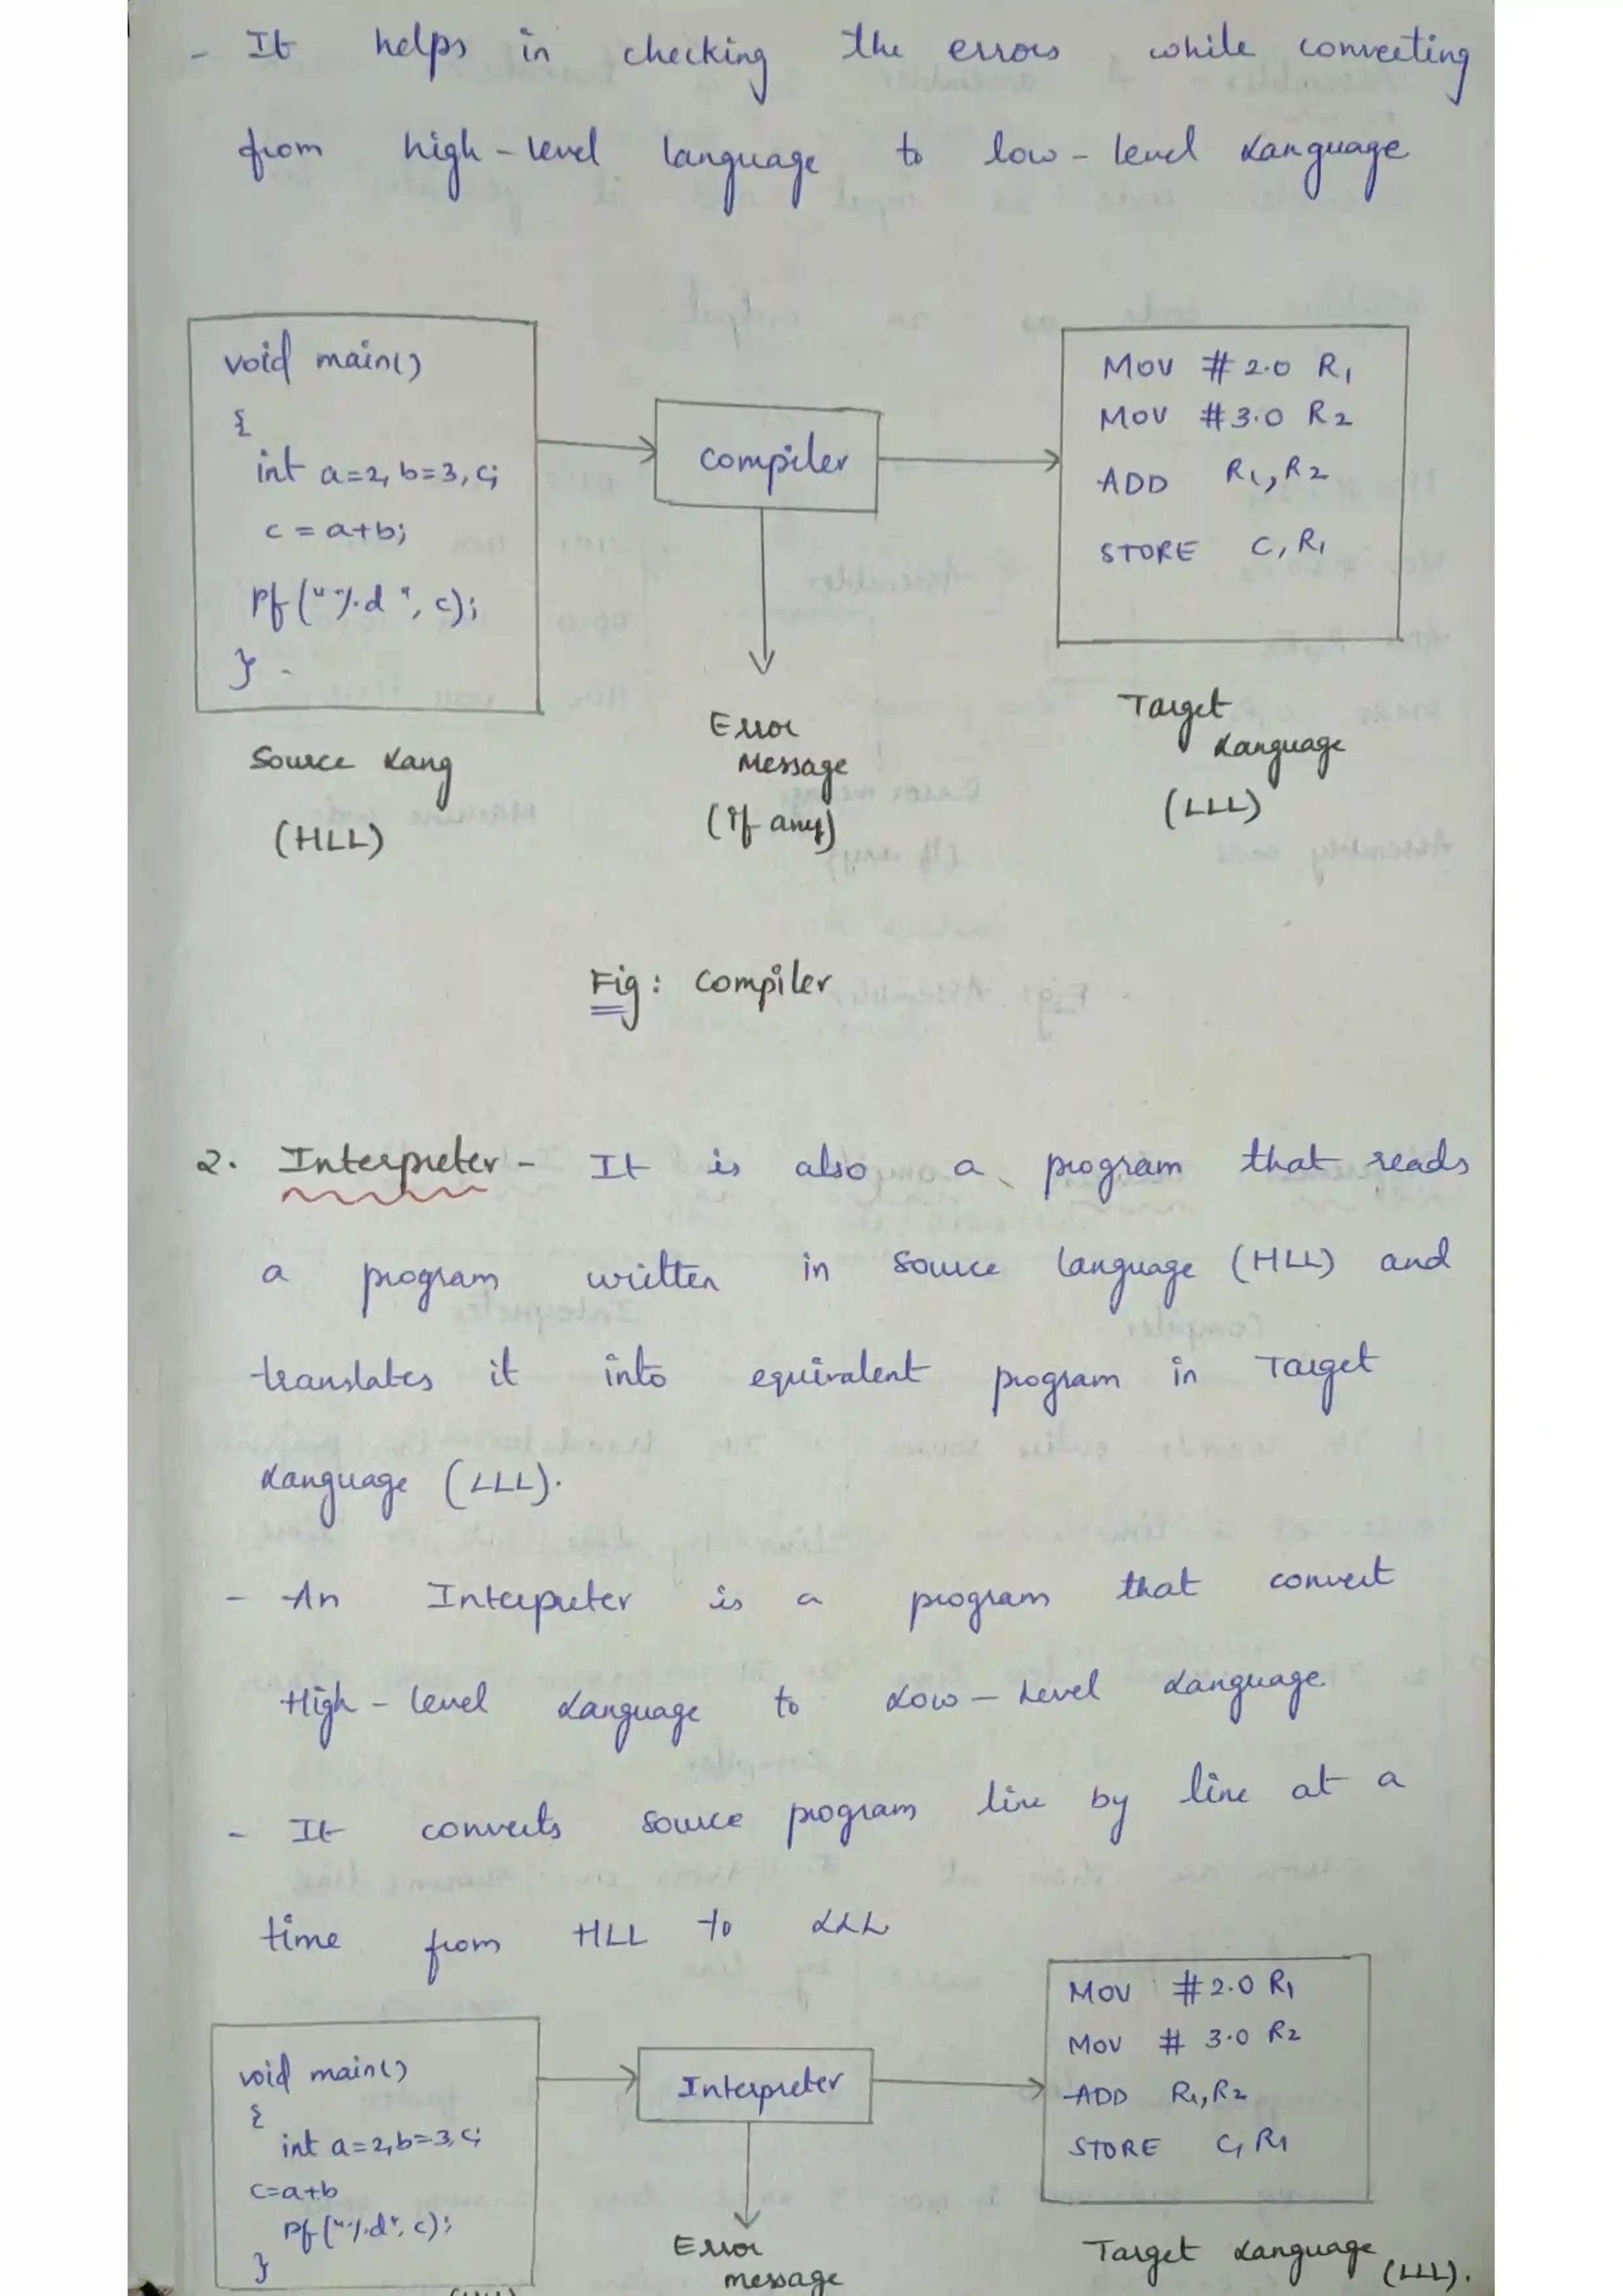 - It helps in checking the errors while converting
from high-level language to low-level Language
void main()
{
int a=2, b=3, c;
c = a+b;
Pf ("%d", c);
}
Source Lang
(HLL)
compiler
Error
Message
(If any)
MOV #2.0 R1
MOV #3.0 R2
ADD R1, R2
STORE C, R1
Target
Language
(LLL)
Fig: Compiler
2. Interpreter - It is also a program that reads
a program written in source language (HLL) and
translates it into equivalent program in Target
Language (LLL).
- An Interpreter is a program that convert
High-level Language to Low-Level Language
- It converts source program line by line at a
time from HLL to LLL
void main()
{
int a=2, b=3, c;
c=a+b
Pf ("%d", c);
}
Interpreter
Error
message
MOV #2.0 R1
MOV # 3.0 R2
ADD R1, R2
STORE C, R1
Target Language (LLL).